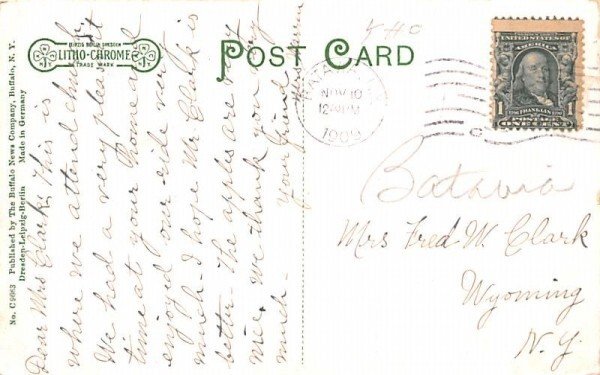 CURTIS BERLIN DRESDEN
LITHO-CHROME
TRADE MARK
POST CARD
No. C 9663 Published by The Buffalo News Company, Buffalo, N. Y.
Dresden-Leipzig-Berlin Made in Germany
Dear Mrs Clark: This is
where we attend church
We had a very pleasant
time at your home and
enjoyed our ride very
much. I hope Mr Clark is
better. The apples are very
nice, we thank you very
much.
Your friend
NOV 10
12
1909
UNITED STATES OF
AMERICA
FRANKLIN
1 1
POSTAGE
ONE CENT
Batavia
Mrs Fred W. Clark
Wyoming
N.Y.